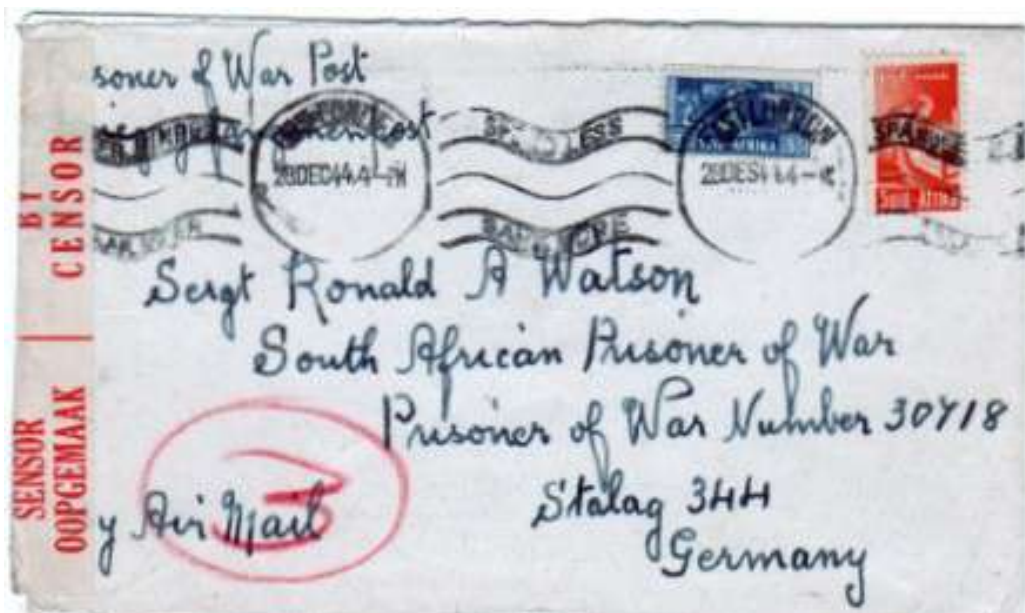 BY
CENSOR
SENSOR
OOPGEMAAK
soner of War Post
28DEC44.4-PM
SPEND LESS
SAVE MORE
EAST LONDON
28DES44.4-
Suid-Afrika
Sergt Ronald A Watson
South African Prisoner of War
Prisoner of War Number 30718
Stalag 344
Germany
y Air Mail
3